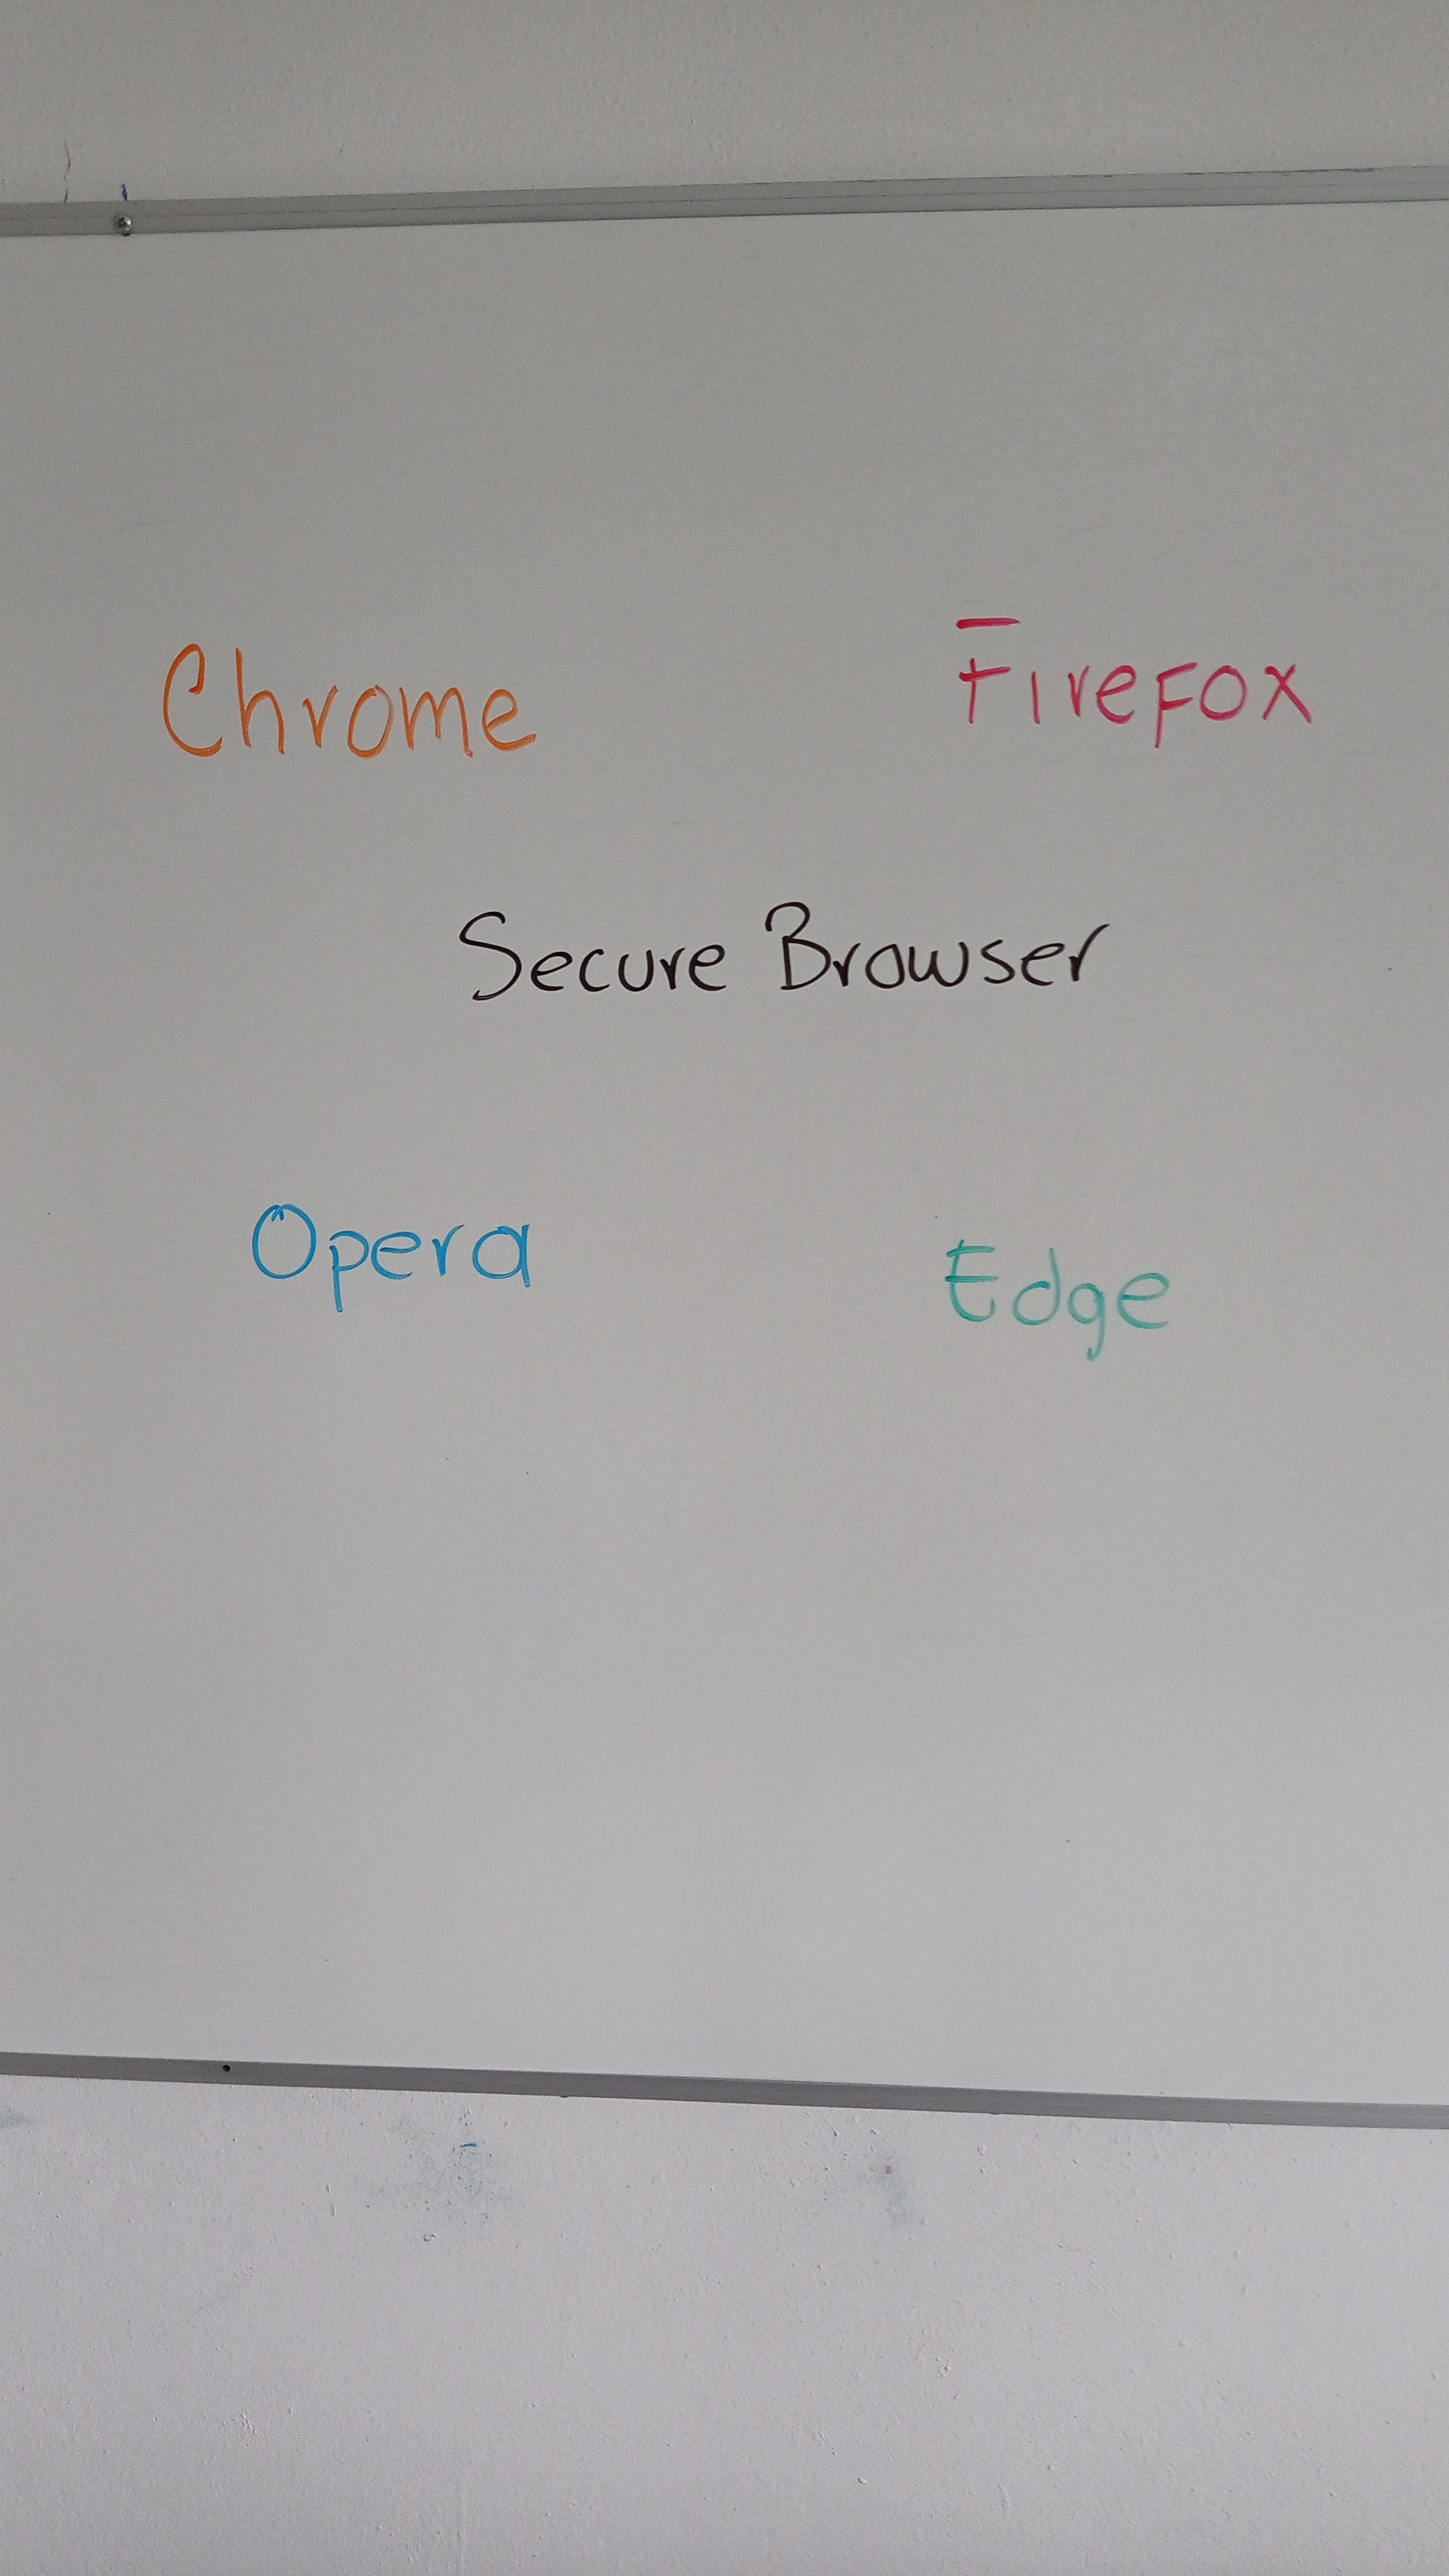 Chrome
Firefox
Secure Browser
Opera
Edge